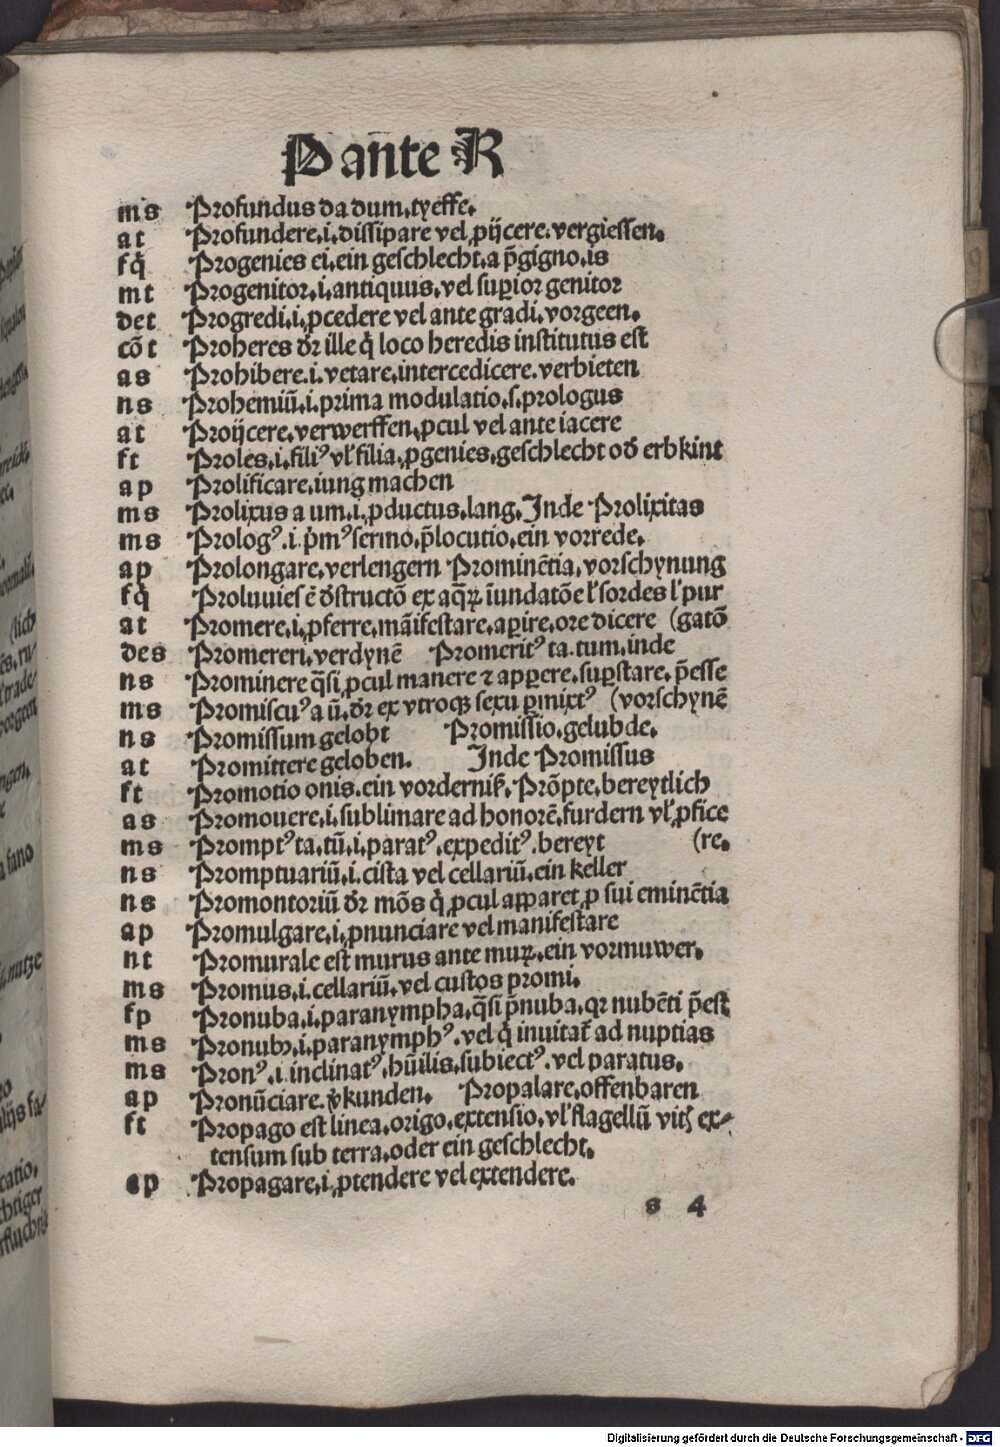 P an̄te R
ms Profundus da dum.tyeffe.
at Profundere.i.dissipare vel ꝓijcere.vergiessen.
fq̄ Progenies ei.ein geschlecht.a p̄gigno.is
mt Progenitor.i.antiquus.vel suꝑior genitor
det Progredi.i.ꝓcedere vel ante gradi.vorgeen.
cōt Proheres dr̄ ille q̄ loco heredis institutus est
as Prohibere.i.vetare.intercedicere.verbieten
ns Prohemiū.i.prima modulatio.s.prologus
at Proijcere.verwerffen.ꝓcul vel ante iacere
ft Proles.i.filiꝰ vl̓ filia.ꝓgenies.geschlecht od̓ erbkint
ap Prolificare.iung machen
ms Prolixus a um.i.ꝓductus.lang.Inde Prolixitas
ms Prologꝰ.i.p̄mꝰ sermo.p̄locutio.ein vorrede.
ap Prolongare.verlengern Prominētia.vorschynung
fq̄ Proluuies ē d̓structō ex aq̄ꝝ īundatōe l̓ sordes l̓ pur
at Promere.i.ꝓferre.māifestare.aꝑire.ore dicere (gatō
des Promereri.verdynē Promeritꝰ ta.tum.inde
ns Prominere q̄si ꝓcul manere ⁊ apꝑere.suꝑstare.p̄esse
ms Promiscuꝰ a ū.dr̄ ex vtroqꝫ sexu ꝑmixtꝰ (vorschynē
ns Promissum gelobt Promissio.gelubde.
at Promittere geloben. Inde Promissus
ft Promotio onis.ein vorderniß.Prōpte.bereytlich
as Promouere.i.sublimare ad honorē.furdern vl̓ ꝓfice
ms Promptꝰ ta.tū.i.paratꝰ.expeditꝰ.bereyt (re.
ns Promptuariū.i.cista vel cellariū.ein keller
ns Promontoriū dr̄ mōs q̄ ꝓcul apparet ꝓ sui eminētia
ap Promulgare.i.ꝓnunciare vel manifestare
nt Promurale est murus ante muꝝ.ein vormuwer.
ms Promus.i.cellariū.vel custos promi.
fp Pronuba.i.paranympha.q̄si p̄nuba.qꝛ nubēti p̄est
ms Pronubꝰ.i.paranymphꝰ.vel q̄ inuitat̄ ad nuptias
ms Pronꝰ.i inclinatꝰ.hūilis.subiectꝰ.vel paratus.
ap Pronūciare.v̓kunden. Propalare.offenbaren
ft Propago est linea.origo.extensio.vl̓ flagellū vitꝭ ex-
tensum sub terra.oder ein geschlecht.
ap Propagare.i.ꝓtendere vel extendere.
s 4
Digitalisierung gefördert durch die Deutsche Forschungsgemeinschaft - DFG